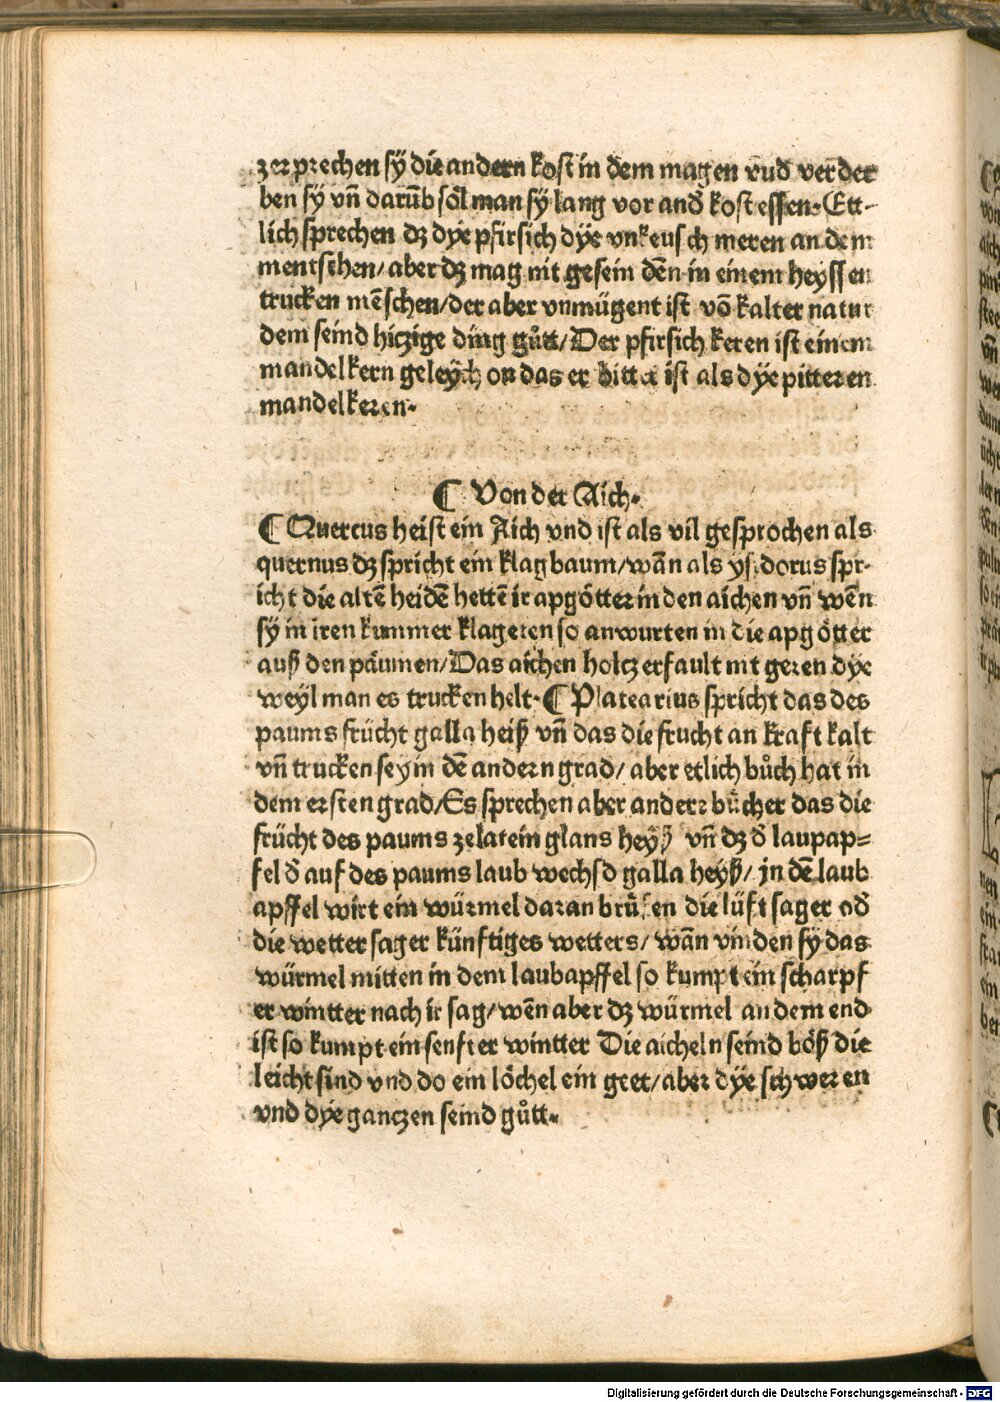 zerprechen sÿ die andern kost in dem magen vnd verder
ben sÿ vn̄ darūb sol man sÿ lang vor and̄ kost essen. Ett-
lich sprechen dz dÿe pfirsich dÿe vnkeusch meren an dem
mentschen/ aber dz mag nit gesein den̄ in einem heyssen
trucken mēschen/ der aber vnmügent ist vō kalter natur
dem seind hiczige ding gůtt/ Der pfirsich keren ist einem
mandelkern geleÿch on das er bitter ist als dÿe pitteren
mandelkeren.
¶ Von der Aich.
¶ Quercus heist ein Aich vnd ist als vil gesprochen als
quernus dz spricht ein klagbaum/ wān als ysidorus spr-
icht die altē heidē hettē ir apgötter in den aichen vn̄ wēn
sÿ in iren kummer klageten so anwurten in die apgötter
auß den päumen/ Das aichen holcz erfault nit geren dÿe
weyl man es trucken helt. ¶ Platearius spricht das des
paums frücht galla heiß vn̄ das die frucht an kraft kalt
vn̄ trucken sey in dē andern grad/ aber etlich bůch hat in
dem ersten grad/ Es sprechen aber andere bücher das die
frücht des paums ze latein glans heyß vn̄ dz d̄ laupap=
fel d̄ auf des paums laub wechsd galla heyß/ jn dē laub
apffel wirt ein würmel daran brüfen die lüft sager od̄
die wetter sager künftiges wetters/ wān vinden sÿ das
würmel mitten in dem laubapffel so kumpt ein scharpf
er wintter nach ir sag/ wēn aber dz würmel an dem end
ist so kumpt ein senfter wintter Die aicheln seind böß die
leicht sind vnd do ein löchel ein geet/ aber dÿe schweren
vnd dÿe ganczen seind gůtt.
Digitalisierung gefördert durch die Deutsche Forschungsgemeinschaft - DFG